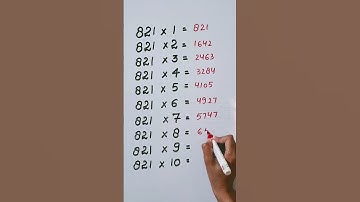 821 x 1 = 821
821 x 2 = 1642
821 x 3 = 2463
821 x 4 = 3284
821 x 5 = 4105
821 x 6 = 4927
821 x 7 = 5747
821 x 8 = 64
821 x 9 =
821 x 10 =